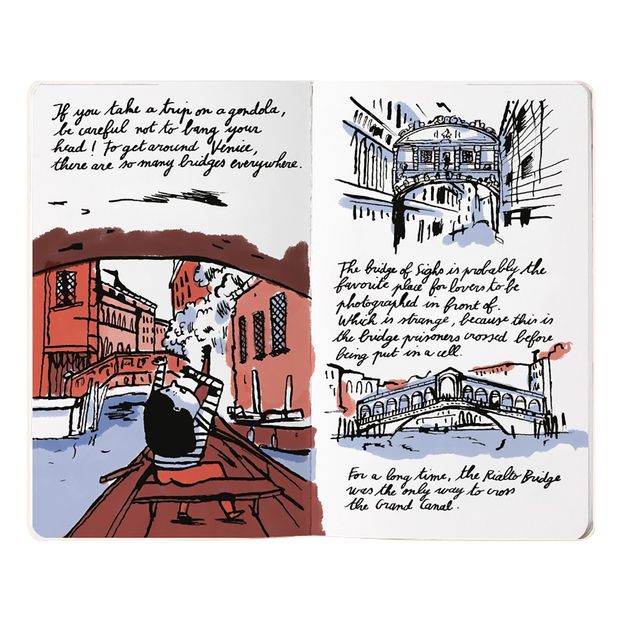 If you take a trip on a gondola,
be careful not to bang your
head! To get around Venice,
there are so many bridges everywhere.
The bridge of Sighs is probably the
favorite place for lovers to be
photographed in front of.
Which is strange, because this is
the bridge prisoners crossed before
being put in a cell.
For a long time, the Rialto Bridge
was the only way to cross
the Grand Canal.